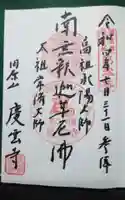 令和四年七月三十一日参拝
高祖承陽大師
南無釈迦牟尼佛
太祖常済大師
慶雲寺